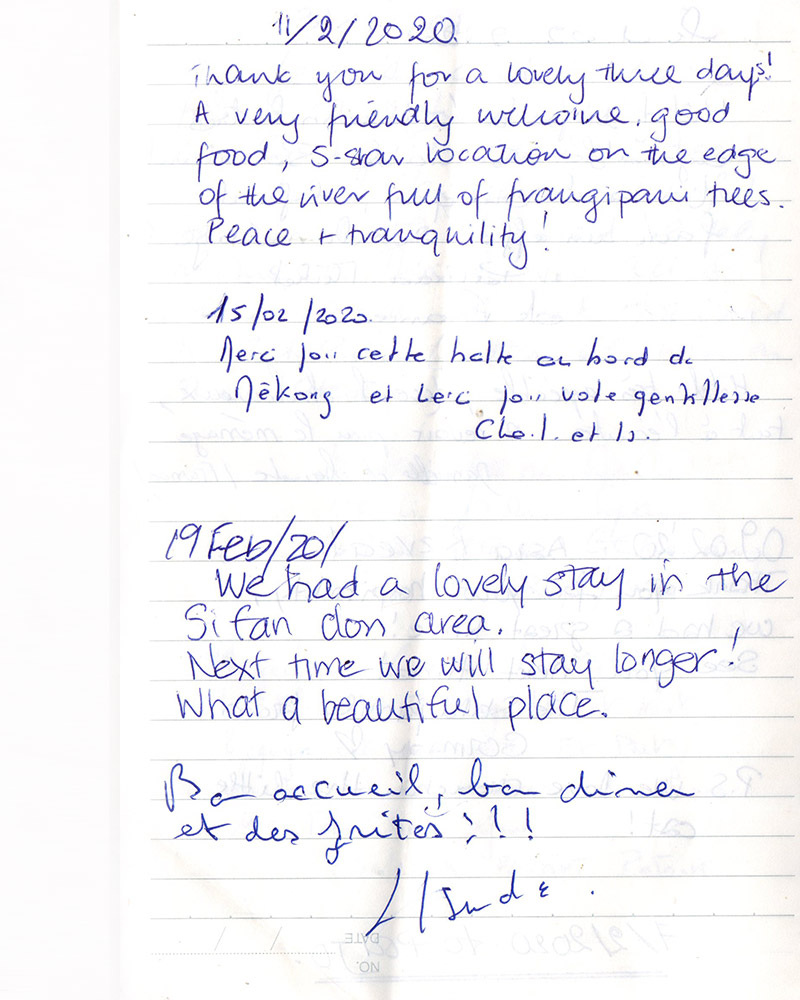 11/2/2020
Thank you for a lovely three days!
A very friendly welcome, good
food, 5-star location on the edge
of the river full of frangipani trees.
Peace + tranquility!
15/02/2020.
Merci pour cette halte au bord du
Mékong et merci pour votre gentillesse
et
19 Feb/20/
We had a lovely stay in the
Si fan don area.
Next time we will stay longer!
What a beautiful place.
Bon accueil, bon diner
et des frites !!!
DATE
NO.